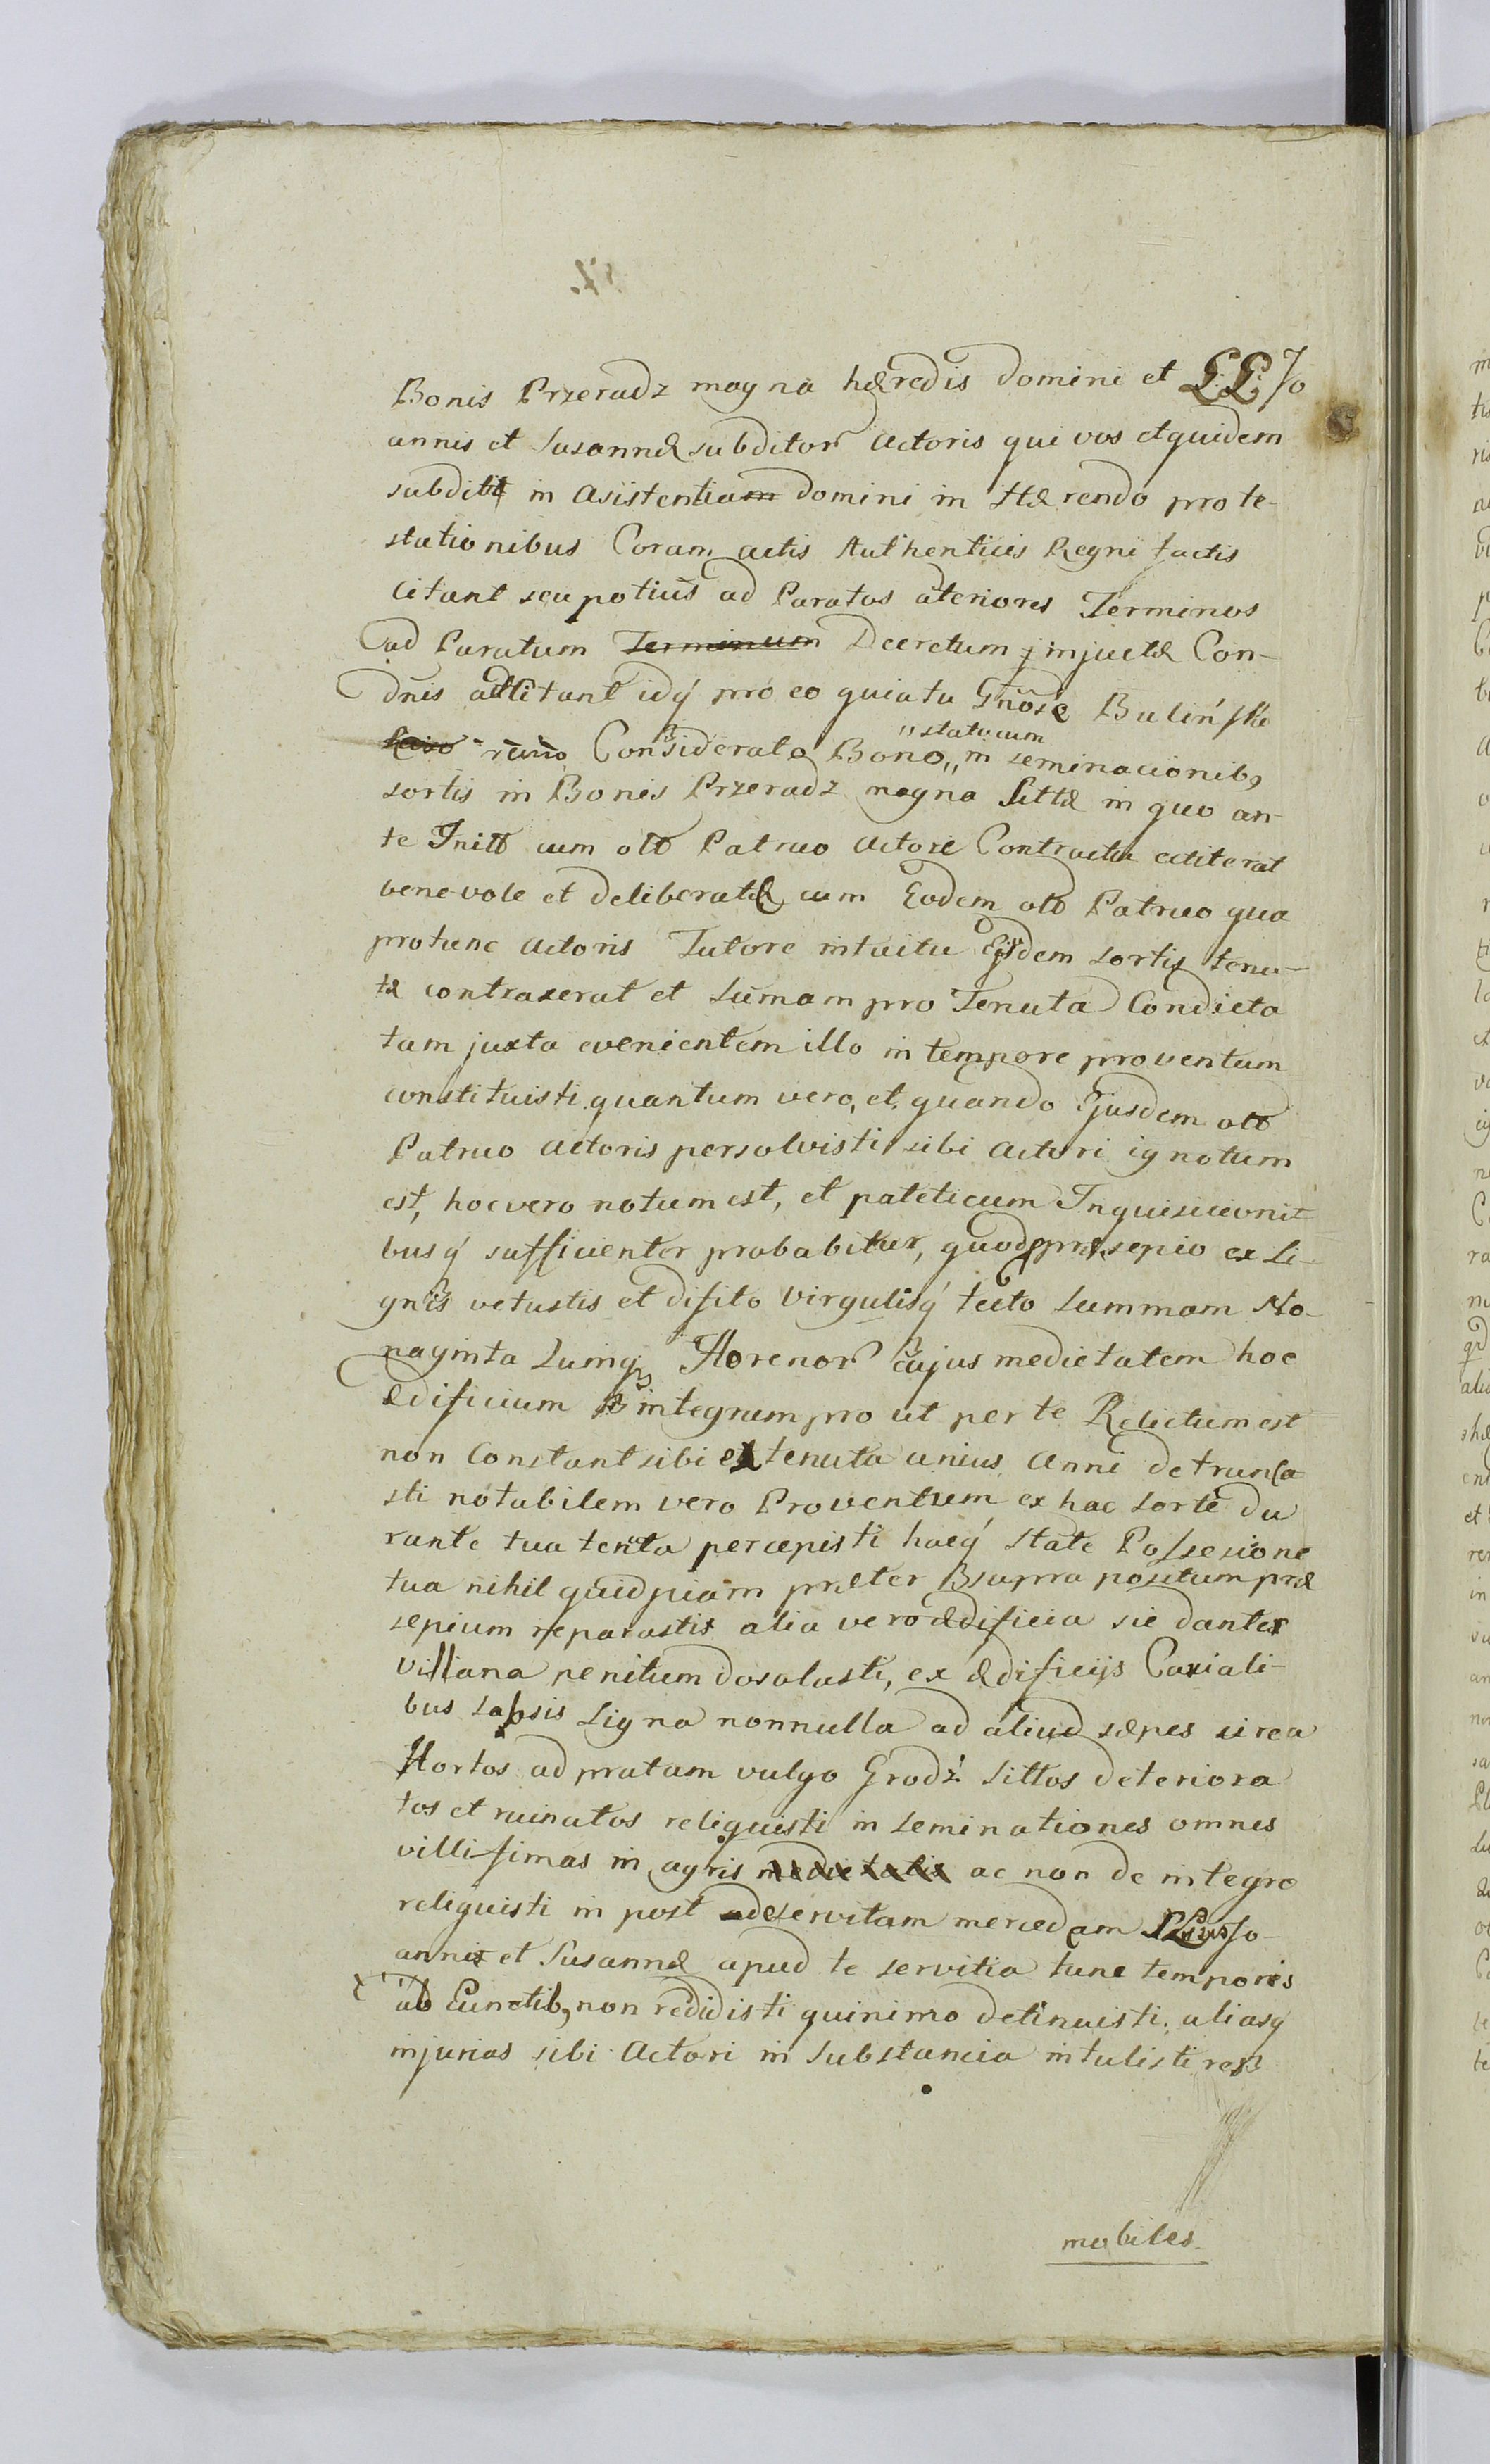 Bonis Przeradz magna hæredis domini et LL Jo
annis et Susannæ subditor Actoris qui vos et quidem
subditi in Asistentiam domini in Hærendo prote-
stationibus Coram actis Authenticis Regni factis
citant seu potius ad Paratos ateriores Terminos
ad Paratum Terminum Decretum injuctæ Con-
dnis attitant idq́ pro eo quia tu Gnose Buliński
rano Considerato Bono "statu cum in seminacionib,
sortis in Bonis Przeradz magna Sittæ in quo an-
te Inito cum olo Patruo Actore Contractu extiterat
benevole et deliberatæ cum Eodem olo Patruo qua
protunc Actoris Tutore intuitu Ejusdem sortis tenu-
tæ contraxerat et sumam pro Tenuta Condicta
tam juxta evenientem illo in tempore proventum
constituisti quantum vero, et quando Ejusdem olo
Patruo Actoris persolvisti sibi Actori ignotum
est, hoc vero notum est, et pateticum Inquisicioni-
busq́ sufficienter probabitur, quod præsepio ex Li-
gnis vetustis et disito Virgulisq́ tecto Summam No-
naginta quinq Florenor cujus medietatem hoc
ædificium integrum pro ut per te Relictum est
non Constant sibi ex tenuta unius Anni detrunca
sti notabilem vero Proventum ex hac sorte du
rante tua tenta percepisti hacq́ state Possesione
tua nihil quidpiam præter supra positum præ
sepium reparasti alia vero ædificia sic danter
Villana penitum dosolasti, ex ædificijs Curiali-
bus Lapsis Ligna nonnulla ad aliud sæpes circa
Hortos ad pratam vulgo Grodź Sittos deteriora
tos et ruinatos reliquisti in seminationes omnes
villisimas in agris medietatis ac non de integro
reliquisti in post deservitam mercedam Jo-
annis et Susannæ apud te servitia tunc temporis
ab Cunctib, non redidisti quinimo detinuisti aliasq́
injurias sibi Actori in Substancia intulisti res
mobiles